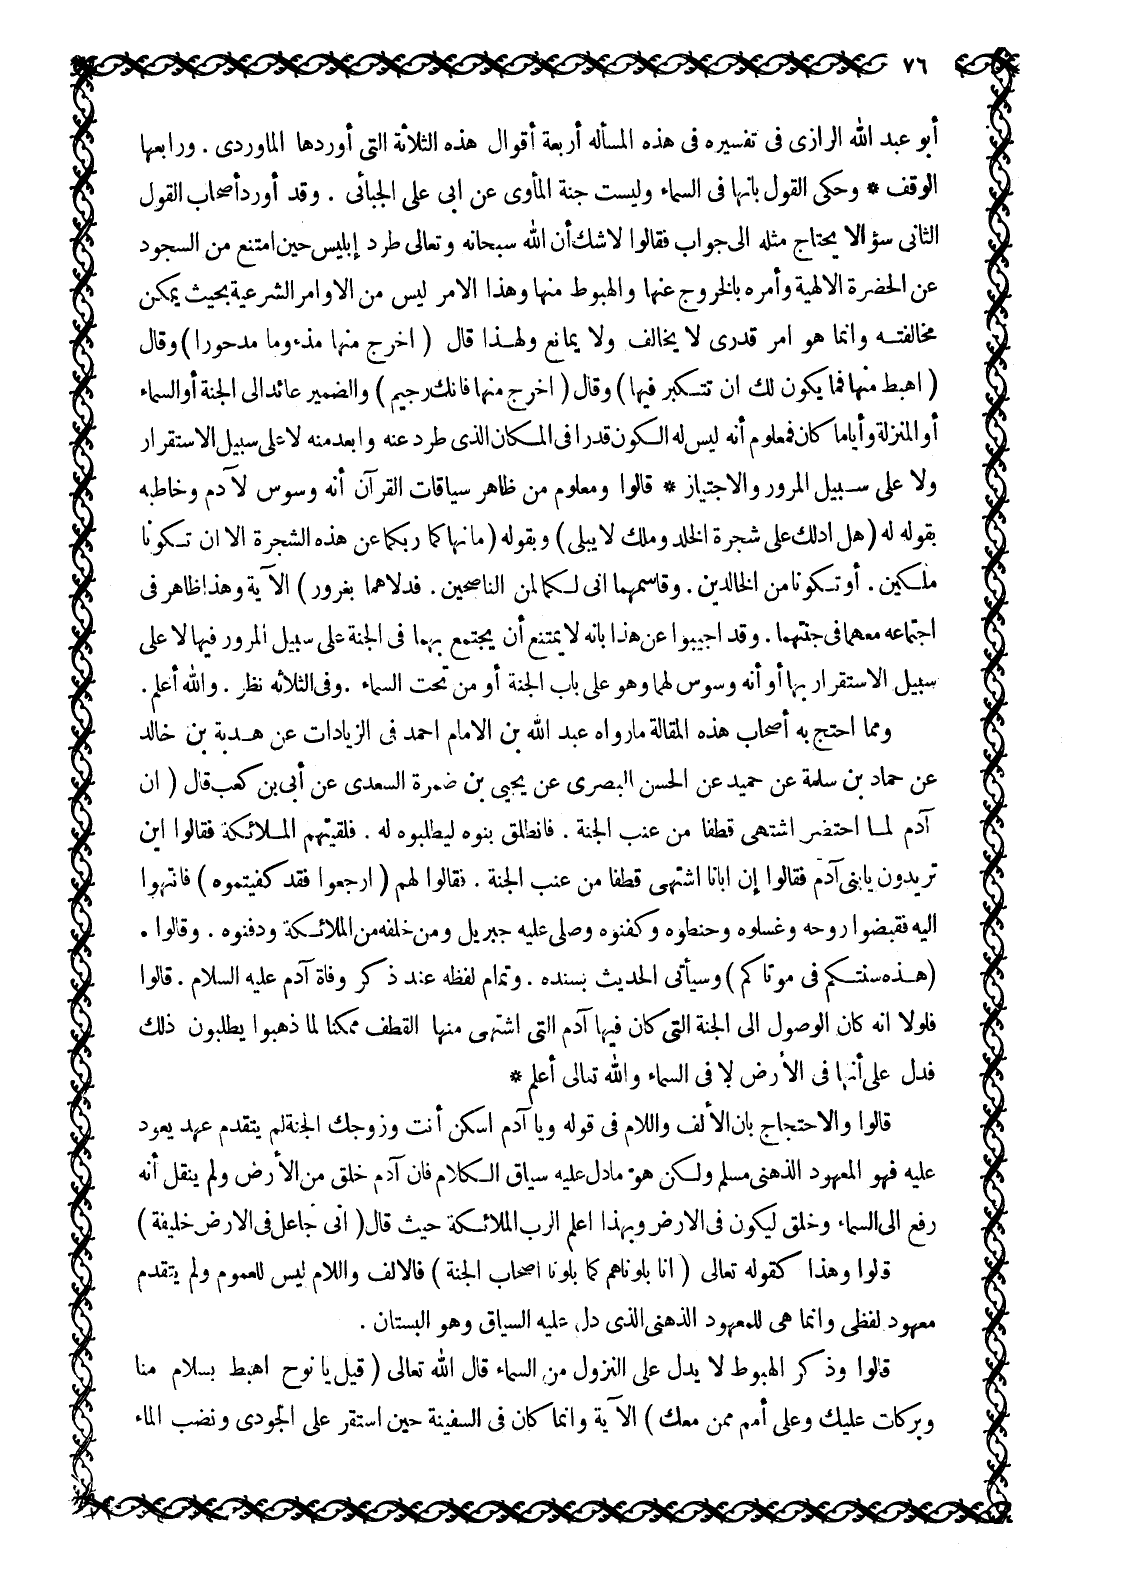 ٧٦
أبو عبد الله الرازى فى تفسيره فى هذه المسأله أربعة أقوال هذه الثلاثة التى أوردها الماوردى . ورابعها
الوقف * وحكى القول بانها فى السماء وليست جنة المأوى عن ابى على الجبائى . وقد أورد أصحاب القول
الثانى سؤالا يحتاج مثله الى جواب فقالوا لاشك أن الله سبحانه وتعالى طرد إبليس حين امتنع من السجود
عن الحضرة الالهية وأمره بالخروج عنها والهبوط منها وهذا الامر ليس من الاوامر الشرعية بحيث يمكن
مخالفتـه وانما هو امر قدرى لا يخالف ولا يمانع ولهـذا قال ( اخرج منها مذءوما مدحورا ) وقال
( اهبط منها فما يكون لك ان تتـكبر فيها ) وقال ( اخرج منها فانك رجيم ) والضمير عائد الى الجنة أو السماء
أو المنزلة وأياما كان فمعلوم أنه ليس له الـكون قدرا فى المـكان الذى طرد عنه وابعد منه لا على سبيل الاستقرار
ولا على سـبيل المرور والاجتياز * قالوا ومعلوم من ظاهر سياقات القرآن أنه وسوس لآدم وخاطبه
بقوله له ( هل ادلك على شجرة الخلد وملك لا يبلى ) وبقوله ( مانها كما ربكما عن هذه الشجرة الا ان تـكونا
ملـكين . أو تـكونا من الخالدين . وقاسمهما انى لـكما لمن الناصحين . فدلاهما بغرور ) الآية وهذا ظاهر فى
اجتماعه معهما فى جنتهما . وقد اجيبوا عن هذا بانه لا يمتنع أن يجتمع بهما فى الجنة على سبيل المرور فيها لا على
سبيل الاستقرار بها أو أنه وسوس لهما وهو على باب الجنة أو من تحت السماء . وفى الثلاثه نظر . والله أعلم .
ومما احتج به أصحاب هذه المقالة مارواه عبد الله بن الامام احمد فى الزيادات عن هـدبة بن خالد
عن حماد بن سلمة عن حميد عن الحسن البصرى عن يحيى بن ضمرة السعدى عن أبى بن كعب قال ( ان
آدم لمـا احتضر اشتهى قطفا من عنب الجنة . فانطلق بنوه ليطلبوه له . فلقيتهم المـلائكة فقالوا اين
تريدون يابنى آدم فقالوا إن ابانا اشتهى قطفا من عنب الجنة . نقالوا لهم ( ارجعوا فقد كفيتموه ) فانتهوا
اليه فقبضوا روحه وغسلوه وحنطوه وكفنوه وصلى عليه جبريل ومن خلفه من الملائـكة ودفنوه . وقالوا .
( هـذه سنتـكم فى موتاكم ) وسيأتى الحديث بسنده . وتمام لفظه عند ذكر وفاة آدم عليه السلام . قالوا
فلولا انه كان الوصول الى الجنة التى كان فيها آدم التى اشتهى منها القطف ممكنا لما ذهبوا يطلبون ذلك
فدل على أنها فى الأرض لا فى السماء والله تعالى أعلم *
قالوا والاحتجاج بان الألف واللام فى قوله ويا آدم اسكن أنت وزوجك الجنة لم يتقدم عهد يعود
عليه فهو المعهود الذهنى مسلم ولـكن هو مادل عليه سياق الـكلام فان آدم خلق من الأرض ولم ينقل أنه
رفع الى السماء وخلق ليكون فى الارض وبهذا اعلم الرب الملائـكة حيث قال ( انى جاعل فى الارض خليفة )
قلوا وهذا كقوله تعالى ( انا بلوناهم كما بلونا اصحاب الجنة ) فالالف واللام ليس للعموم ولم يتقدم
معهود لفظى وانما هى للمعهود الذهنى الذى دل عليه السياق وهو البستان .
قالوا وذكر الهبوط لا يدل على النزول من السماء قال الله تعالى ( قيل يا نوح اهبط بسلام منا
وبركات عليك وعلى أمم ممن معك ) الآية وانما كان فى السفينة حين استقر على الجودى ونضب الماء